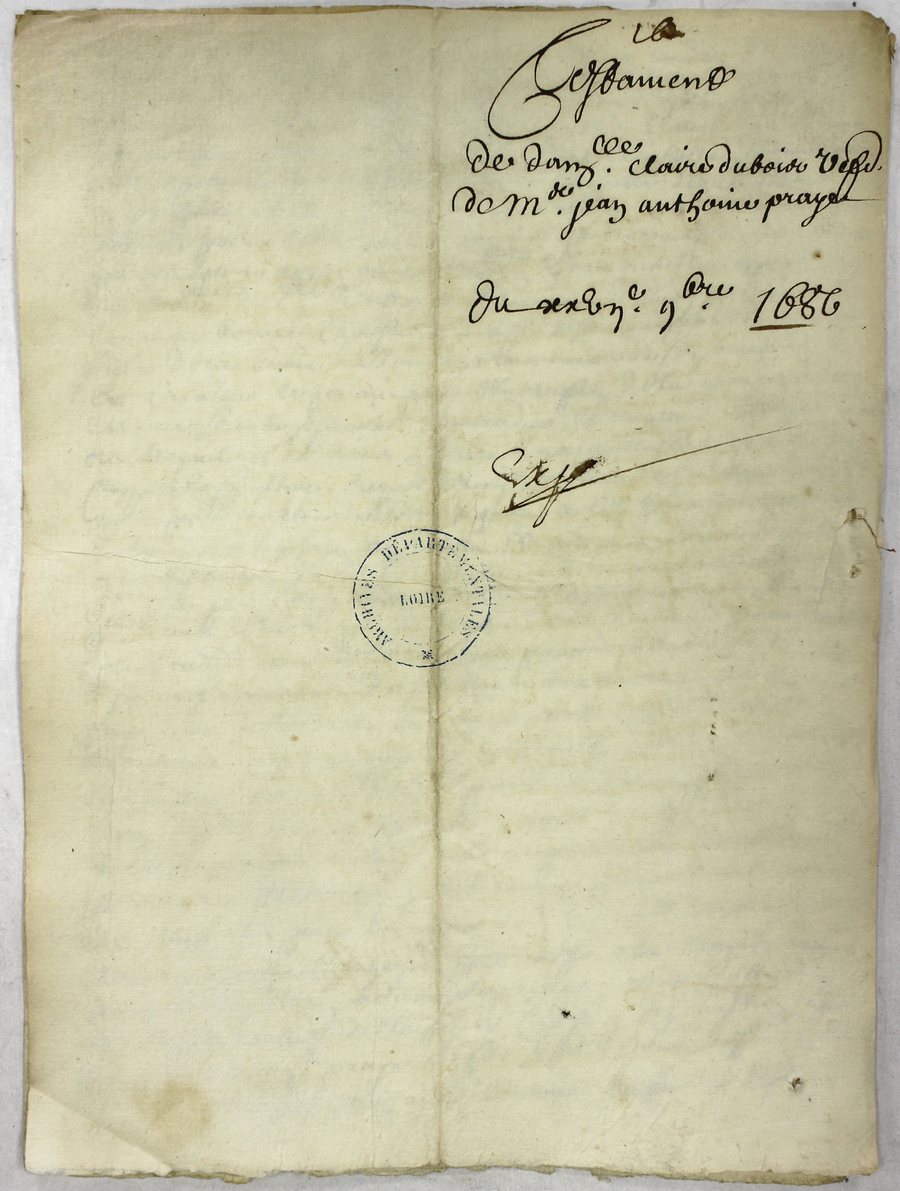 16
Testament
de dam.lle claire duboier vefe
de m.re jean anthoine praye
du xxvii.e 9.bre 1686
Exp
ARCHIVES DÉPARTEMENTALES
LOIRE